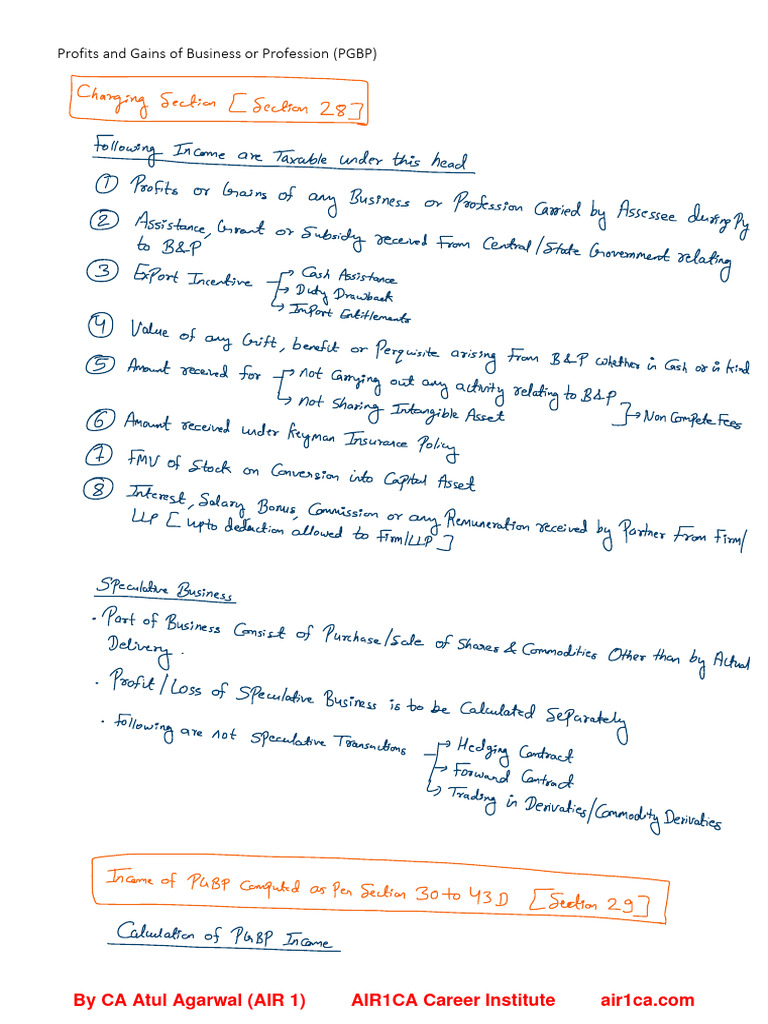 Profits and Gains of Business or Profession (PGBP)
Charging Section [Section 28]
Following Income are Taxable under this head
① Profits or Gains of any Business or Profession Carried by Assessee during Py
② Assistance, Grant or Subsidy received From Central/State Government relating
to B&P
③ Export Incentive → Cash Assistance
→ Duty Drawback
→ Import Entitlements
④ Value of any Gift, benefit or Perquisite arising From B&P whether in Cash or in kind
⑤ Amount received for → not Carrying out any activity relating to B&P
→ not Sharing Intangible Asset → Non Compete Fees
⑥ Amount received under Keyman Insurance Policy
⑦ FMV of Stock on Conversion into Capital Asset
⑧ Interest, Salary Bonus, Commission or any Remuneration received by Partner From Firm/
LLP [upto deduction allowed to Firm/LLP]
Speculative Business
• Part of Business Consist of Purchase/Sale of Shares & Commodities Other than by Actual
Delivery.
• Profit/Loss of Speculative Business is to be Calculated Separately
• Following are not Speculative Transactions → Hedging Contract
→ Forward Contract
→ Trading in Derivaties/Commodity Derivaties
Income of PGBP Computed as Per Section 30 to 43D [Section 29]
Calculation of PGBP Income
By CA Atul Agarwal (AIR 1) AIR1CA Career Institute air1ca.com